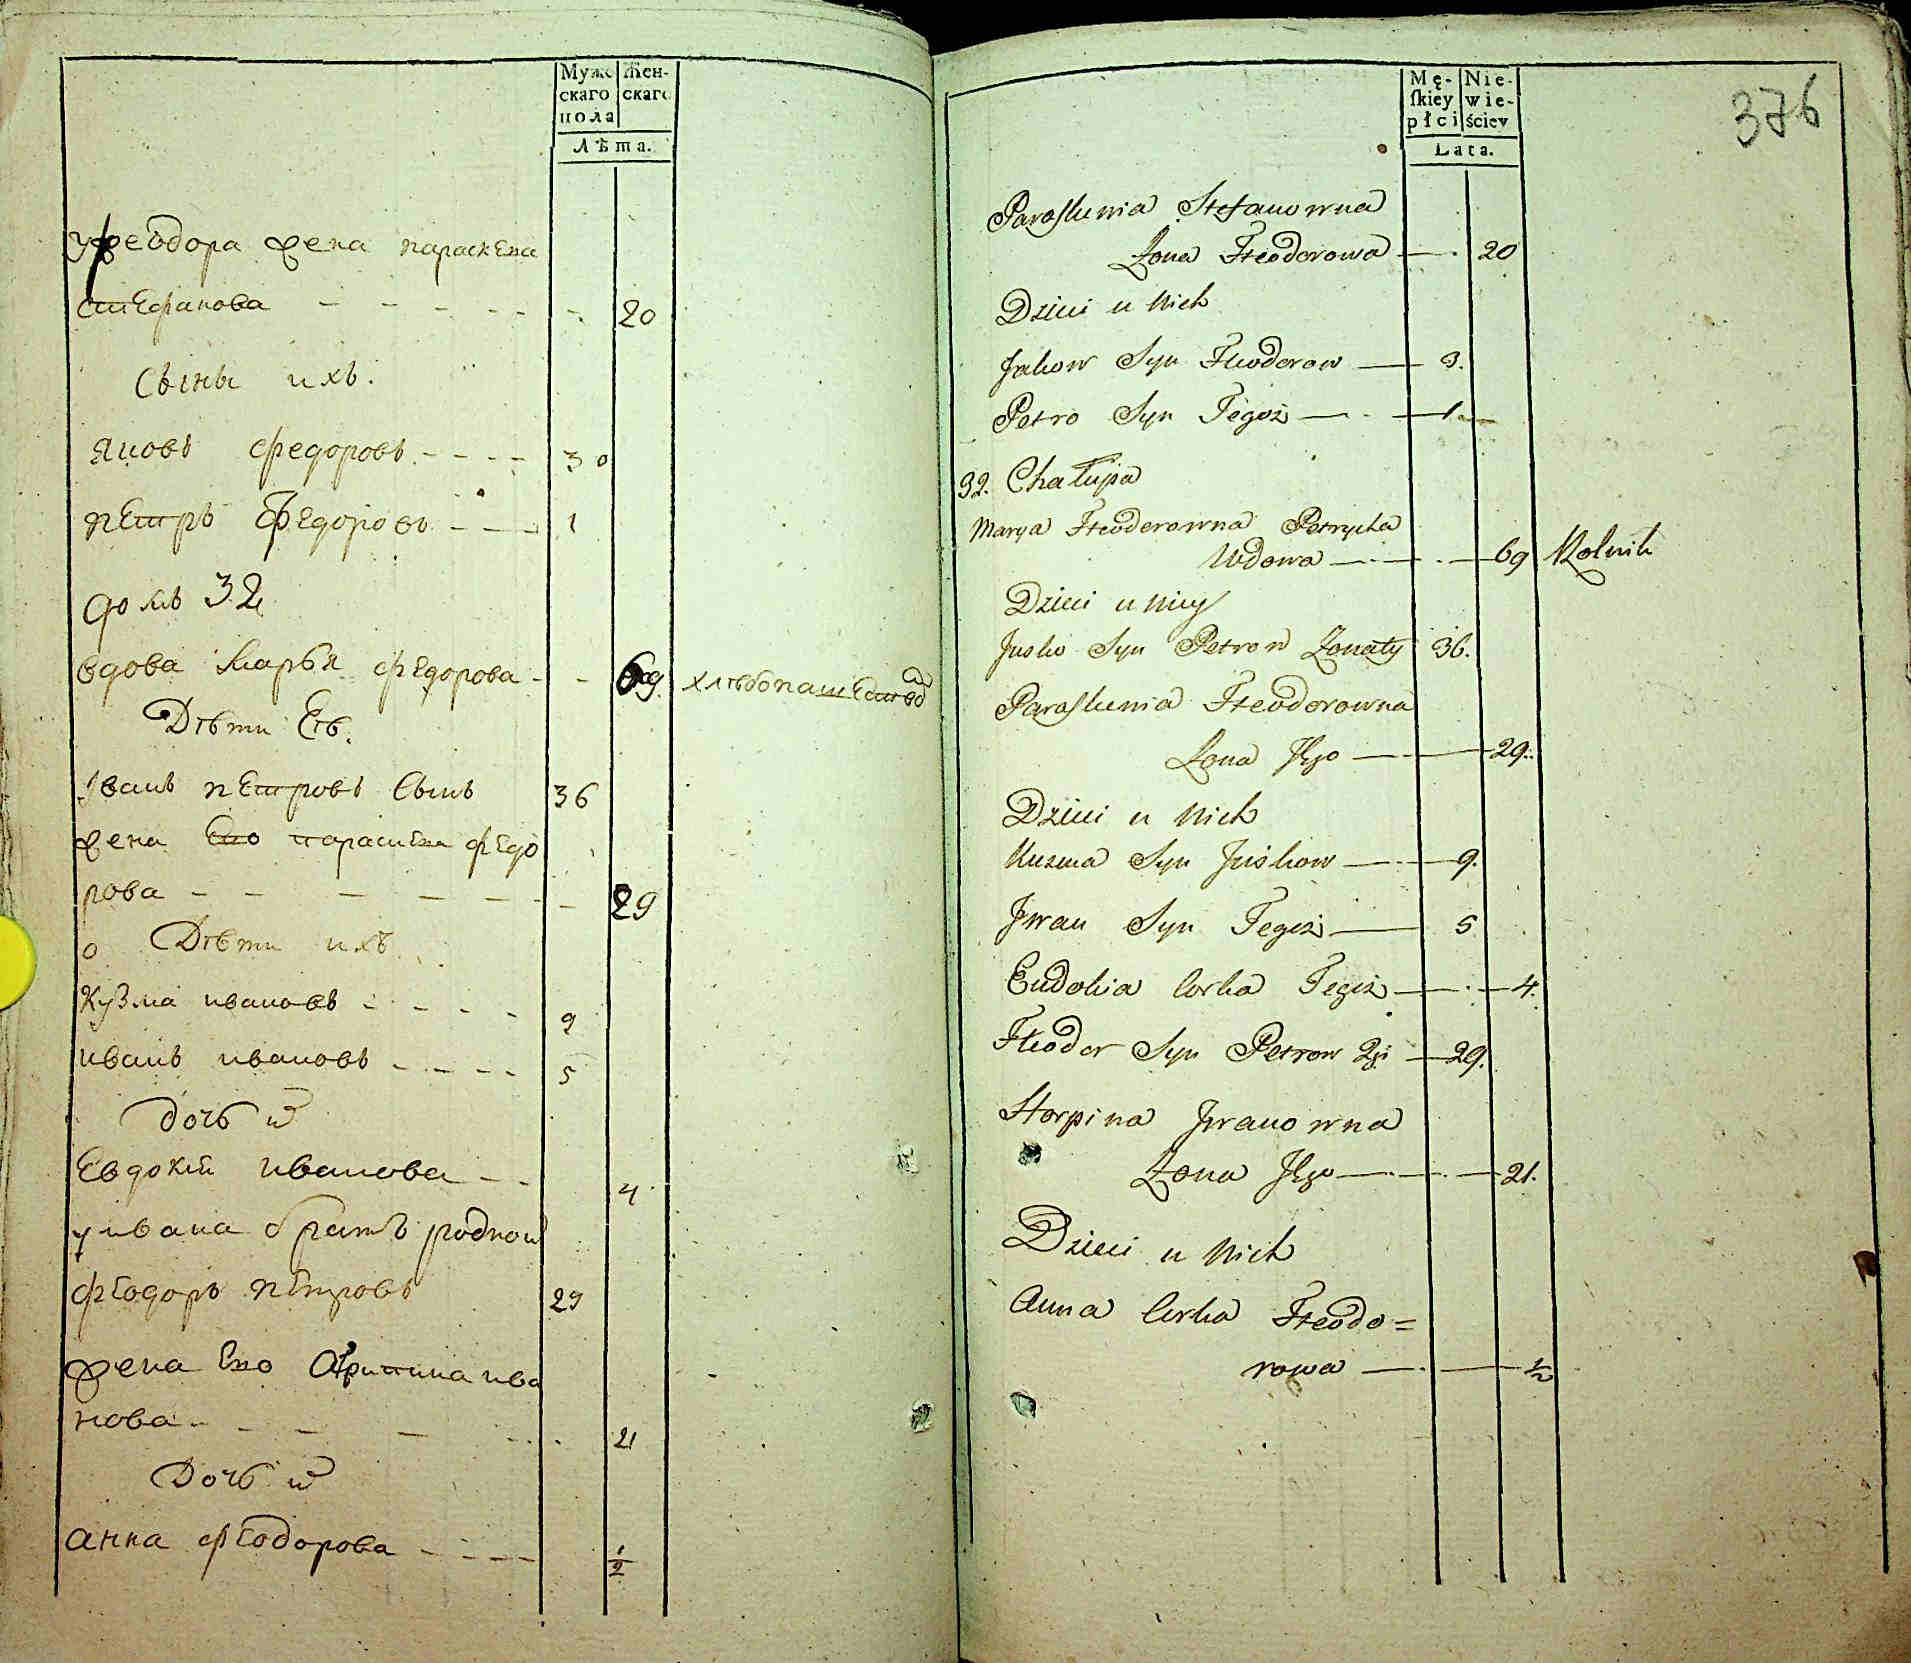 Муже
скаго
пола
Жен-
скаго
Лѣта.
у феодора жена параскева
стефанова 20
Сыны ихъ.
яковъ федоровъ 3
петръ федоровъ 1
домъ 32
вдова Марья федорова 69 хлебопашество
Дѣти Еѣ.
Иванъ петровъ Сынъ 36
жена Его параскева федо
рова 29
Дѣти ихъ
Кузма ивановъ 9
иванъ ивановъ 5
дочь
Евдокия иванова 4
у ивана братъ родной
феодоръ петровъ 29
жена Его ива
нова 21
Дочь
анна феодорова 1/2
Mę-
skiey
płci
Nie-
wie-
ściey
Lata.
376
Paraskewia Stefanowna
Zona Fteodorowa 20
Dzieci u Nich
Jakow Syn Fteodorow 3.
Petro Syn Tegoż 1
32. Chałupa
Marya Fteoderowna Petrycha
Wdowa 69 Rolnik
Dzieci u Niey
Jusko Syn Petrow Zonaty 36.
Paraskewia Fteodorowna
Zona Jego 29.
Dzieci u Nich
Kuzma Syn Juskow 9.
Jwan Syn Tegoż 5
Eudokia Corka Tegoż 4.
Fteodor Syn Petrow 2gi 29.
Horpina Jwanowna
Zona Jego 21.
Dzieci u Nich
Anna Corka Fteodo=
rowa 1/2